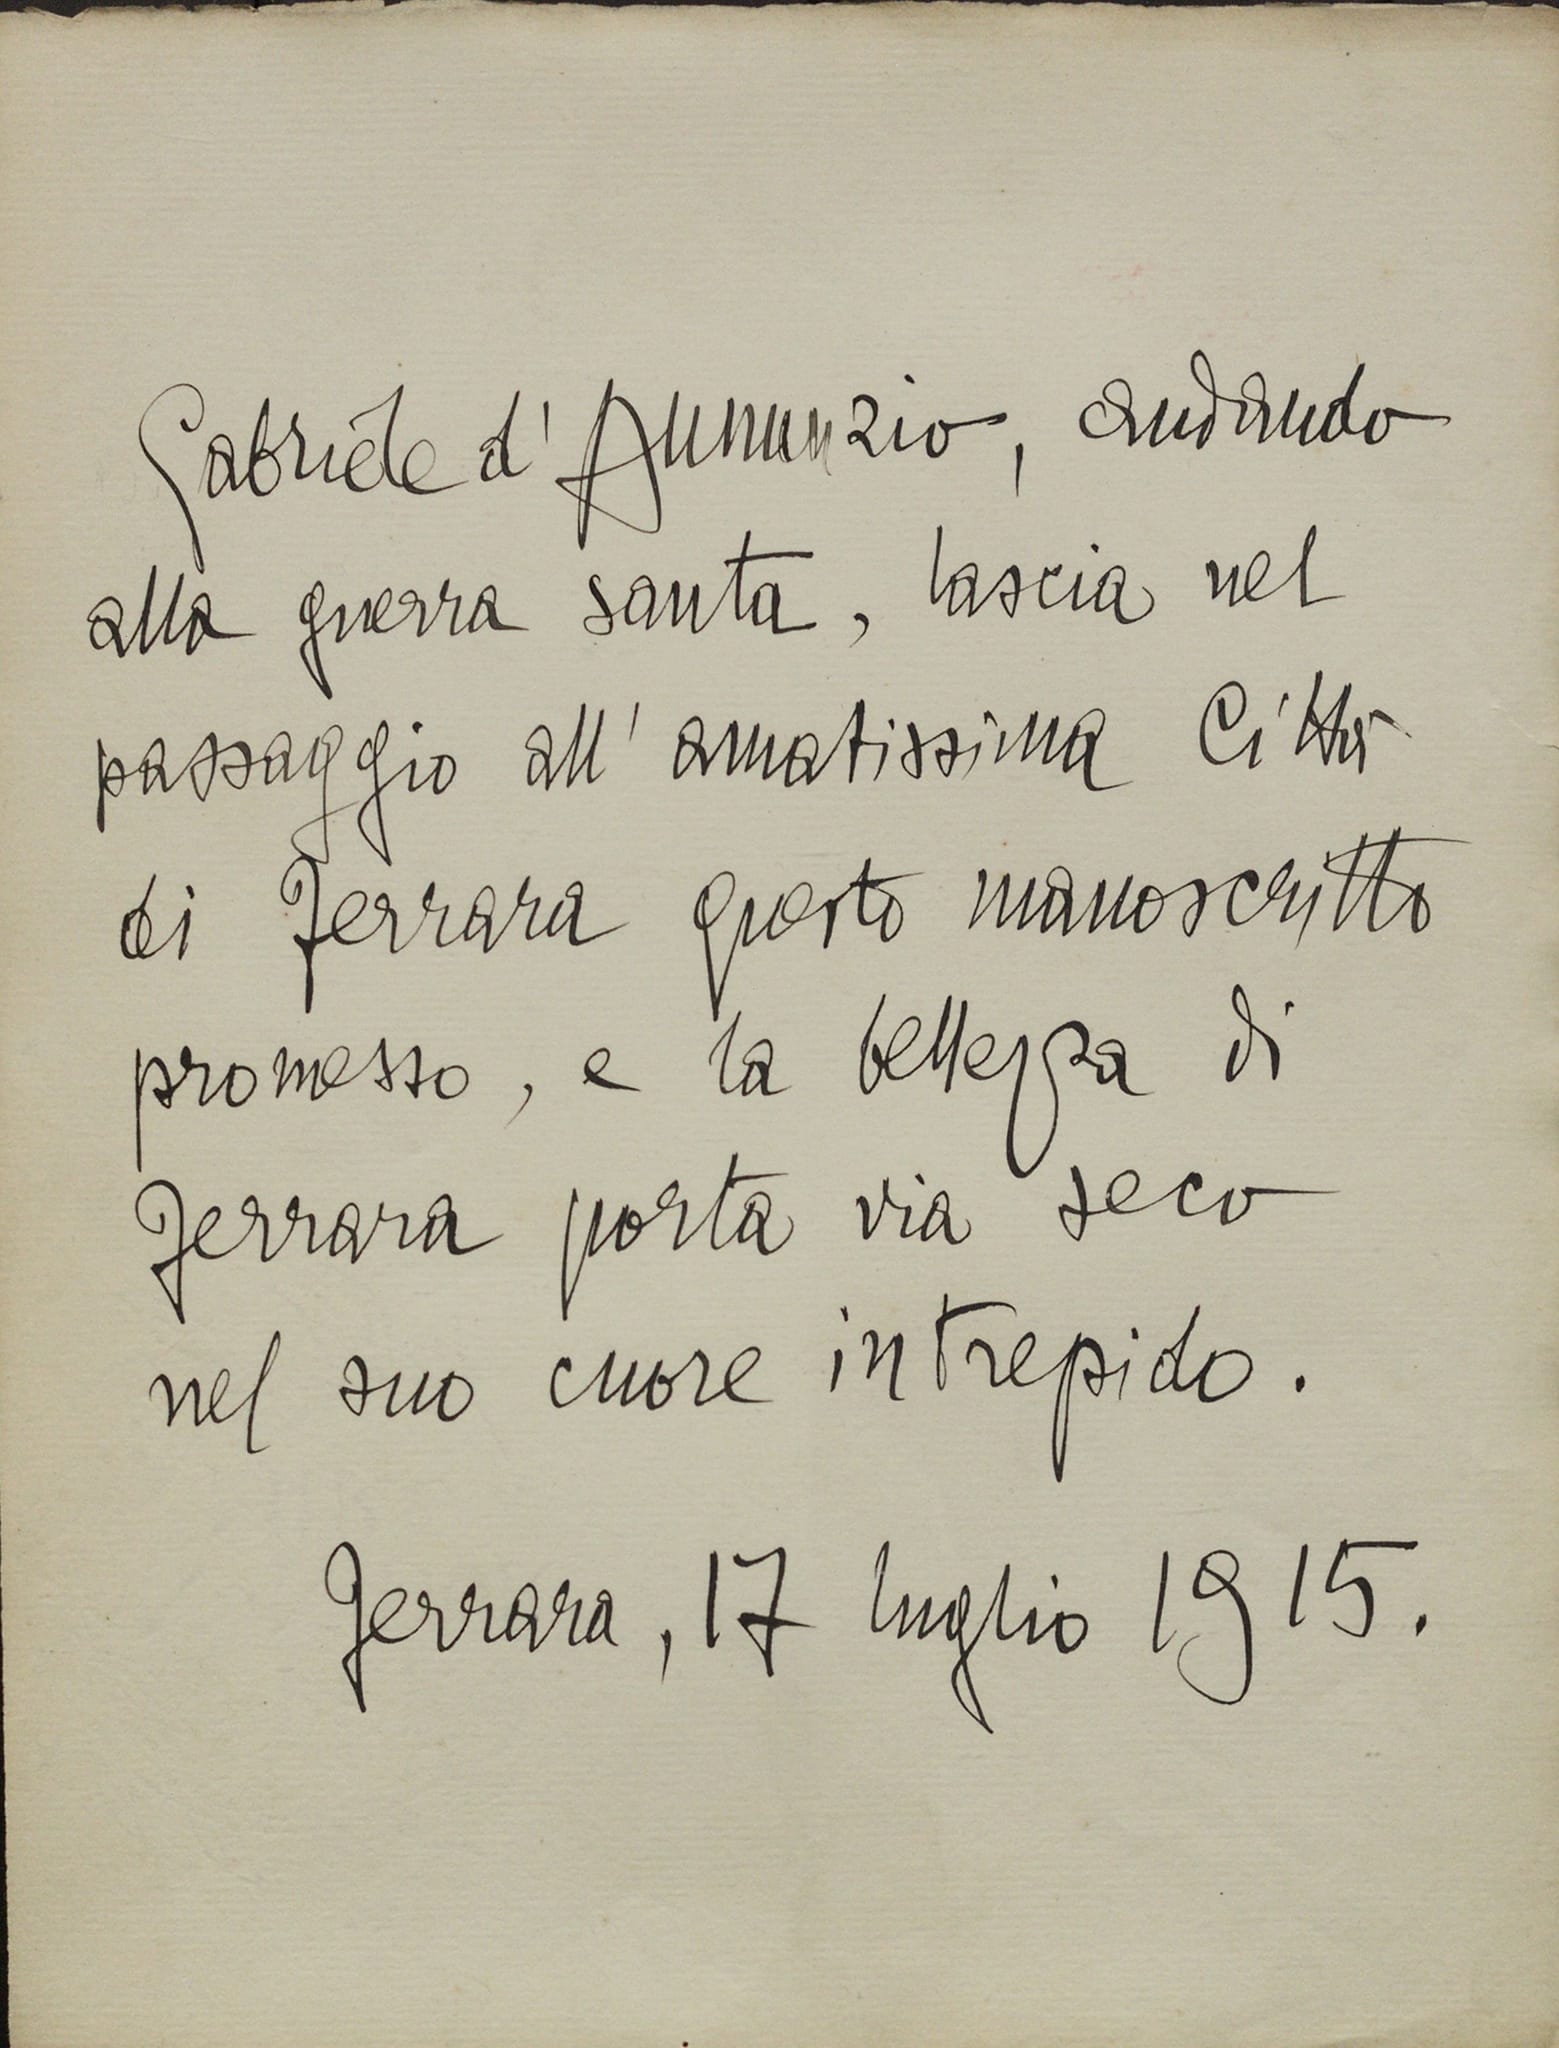 Gabriele d'Annunzio, andando
alla guerra santa, lascia nel
passaggio all'amatissima Città
di Ferrara questo manoscritto
promesso, e la bellezza di
Ferrara porta via seco
nel suo cuore intrepido.
Ferrara, 17 luglio 1915.